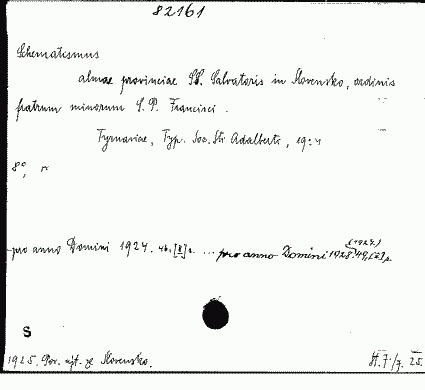 82161
Schematismus
almae provinciae SS. Salvatoris in Slovensko, ordinis
fratrum minorum S. P. Francisci.
Tyrnaviae, Typ. Soc. Sti Adalberti, 19
8°,
pro anno Domini 1924. 46, [2] s. ... pro anno Domini 1928. 49, [2] s.
(1927.)
S
1925. Pov. výt. ze Slovenska.
7/7. 25.